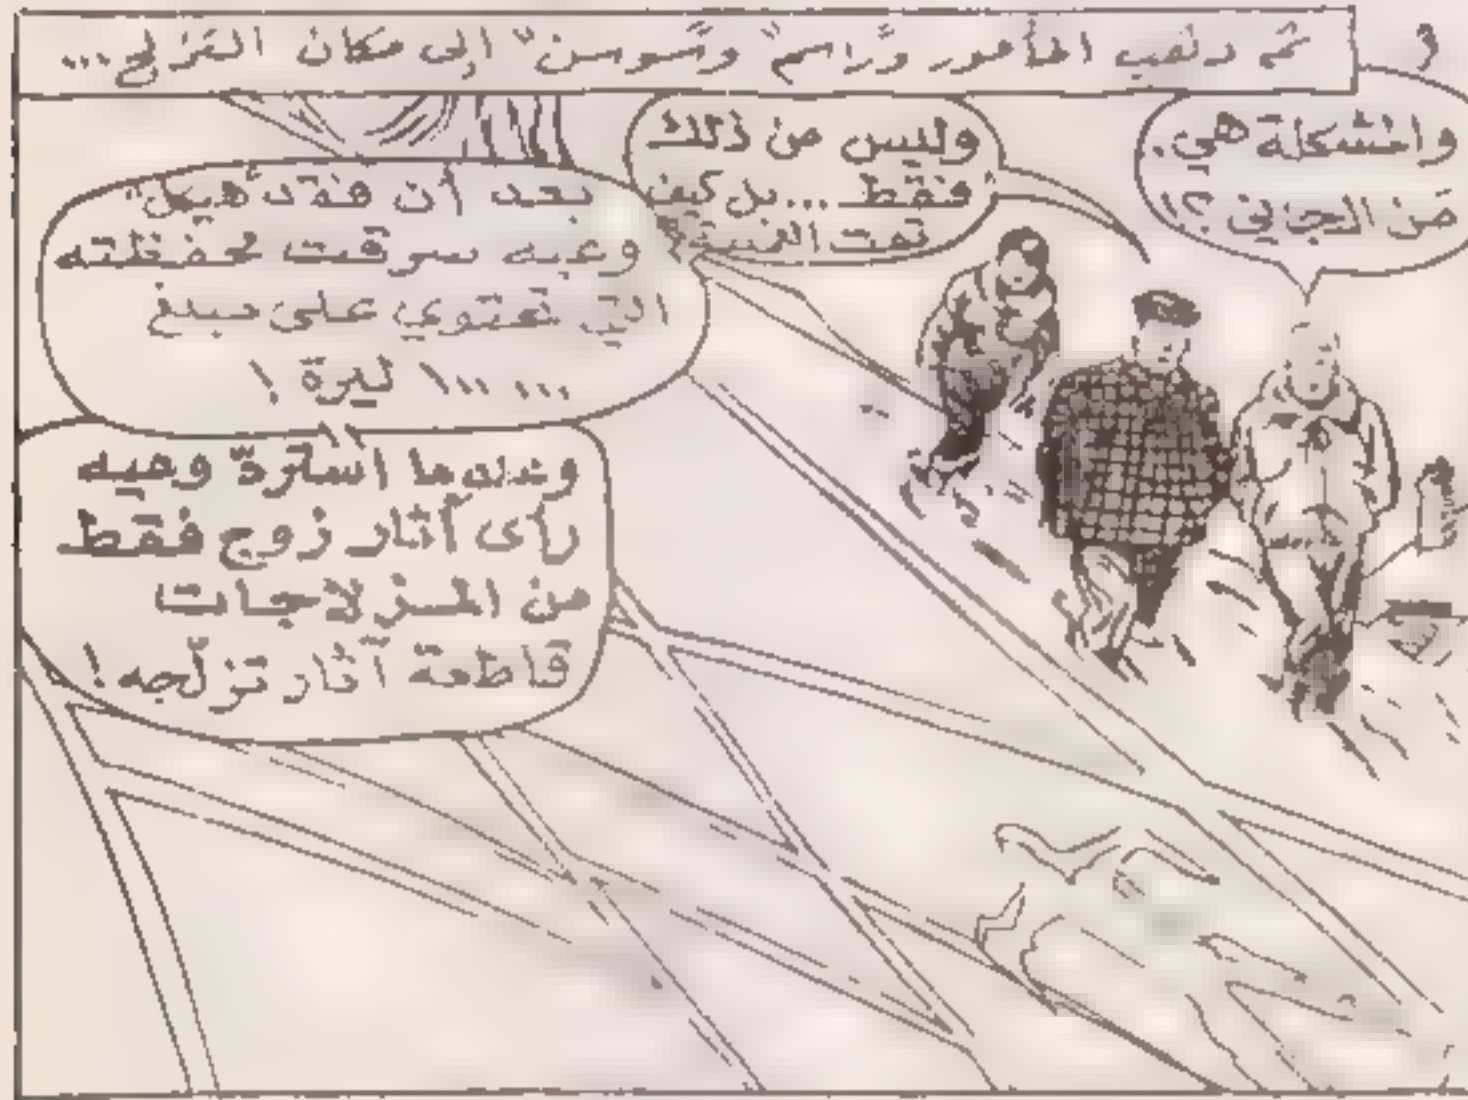 ثم ذهب المأمور و"راسم" و"سوسن" إلى مكان التزلج...
والمشكلة هي.
مَن الجاني؟!
وليس من ذلك
فقط... بل كيف
تمت الضربة؟
بعد أن فقد "هيكل"
وعيه سرقت محفظته
التي تحتوي على مبلغ
١٠٠ ٠٠٠ ليرة!
وعندما استردّ وعيه
رأى آثار زوج فقط
من المزلاجات
قاطعة آثار تزلّجه!